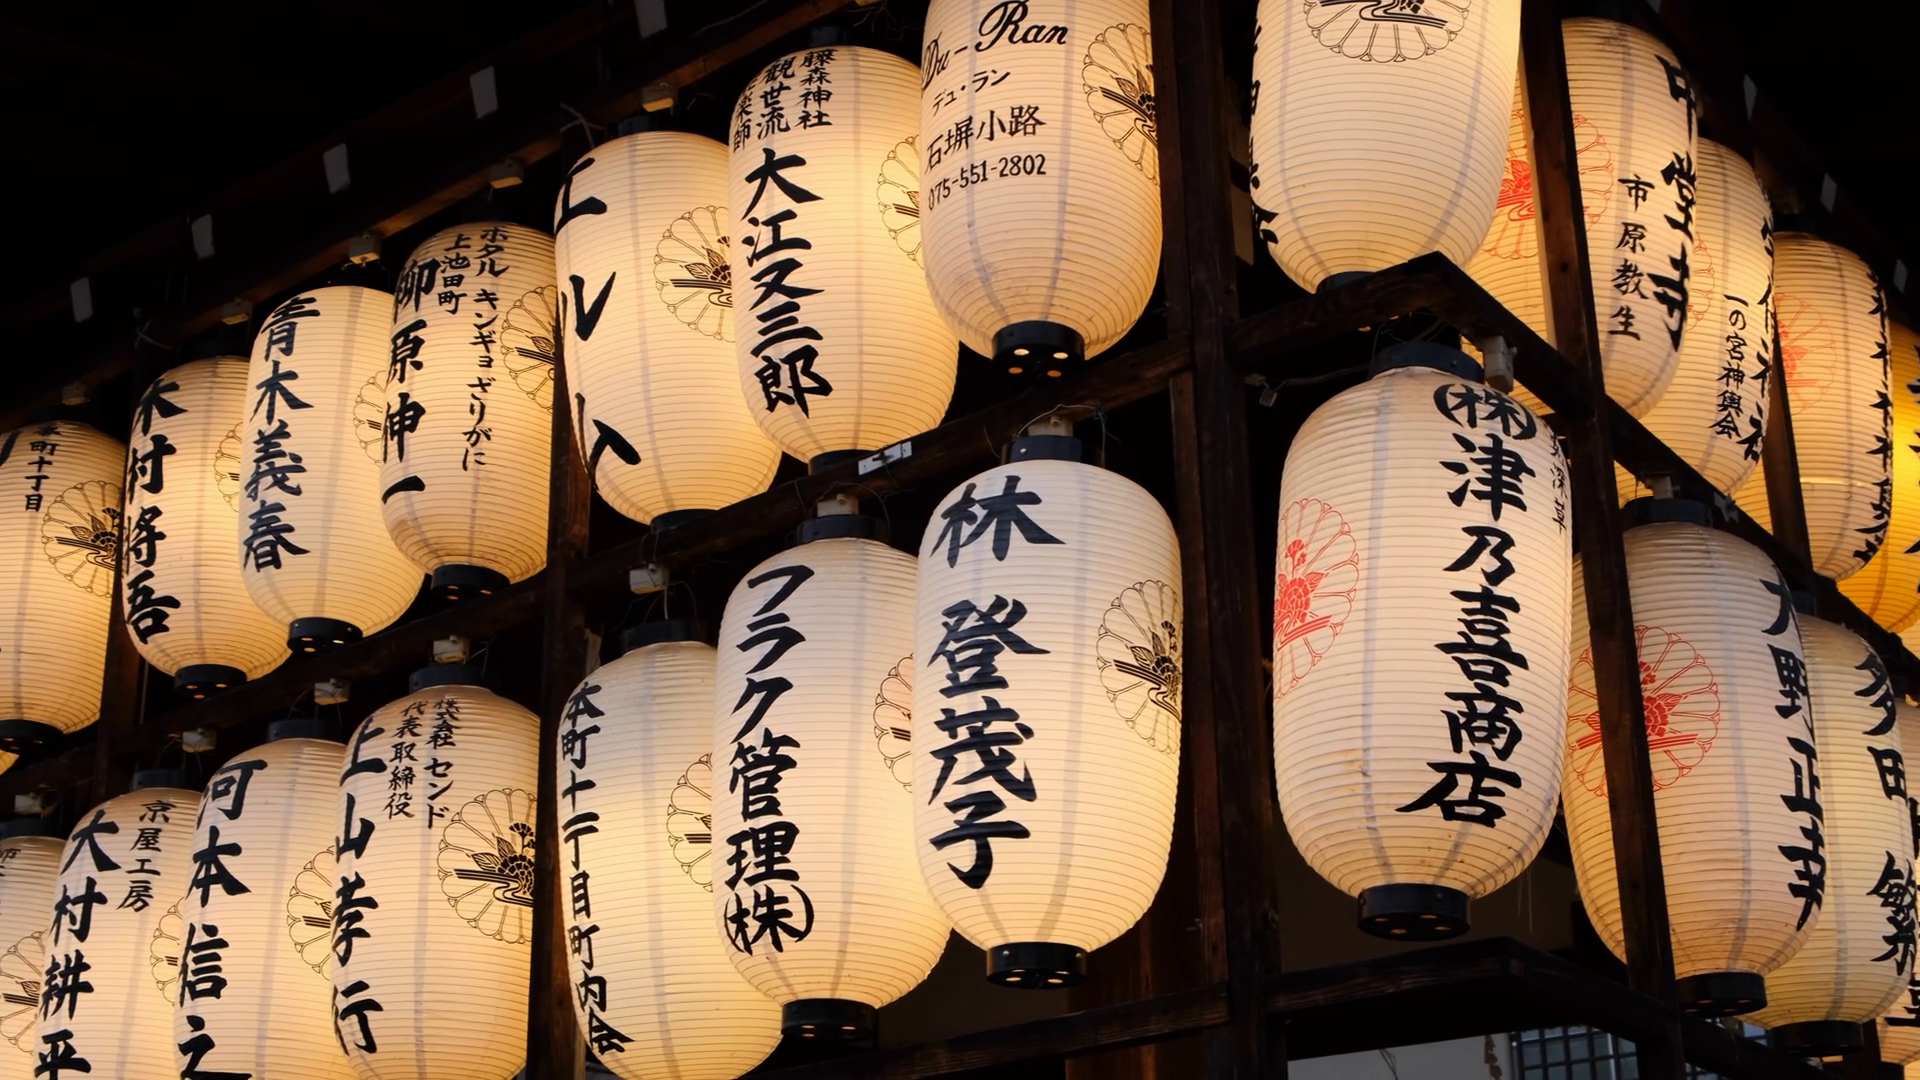 本町十丁目
木村将吾
青木義春
ホタル キンギョ ざりがに
上池田町
柳原伸一
エルム
藤森神社
観世流
大江又三郎
Du-Ran
デュ・ラン
石塀小路
075-551-2802
中堂寺
市原教生
一の宮神輿会
京屋工房
大村耕平
河本信之
株式会社 センド
代表取締役
上山孝行
本町十二丁目町内会
フラク管理(株)
林 登茂子
(株)津乃喜商店
大野正幸
多田 繁